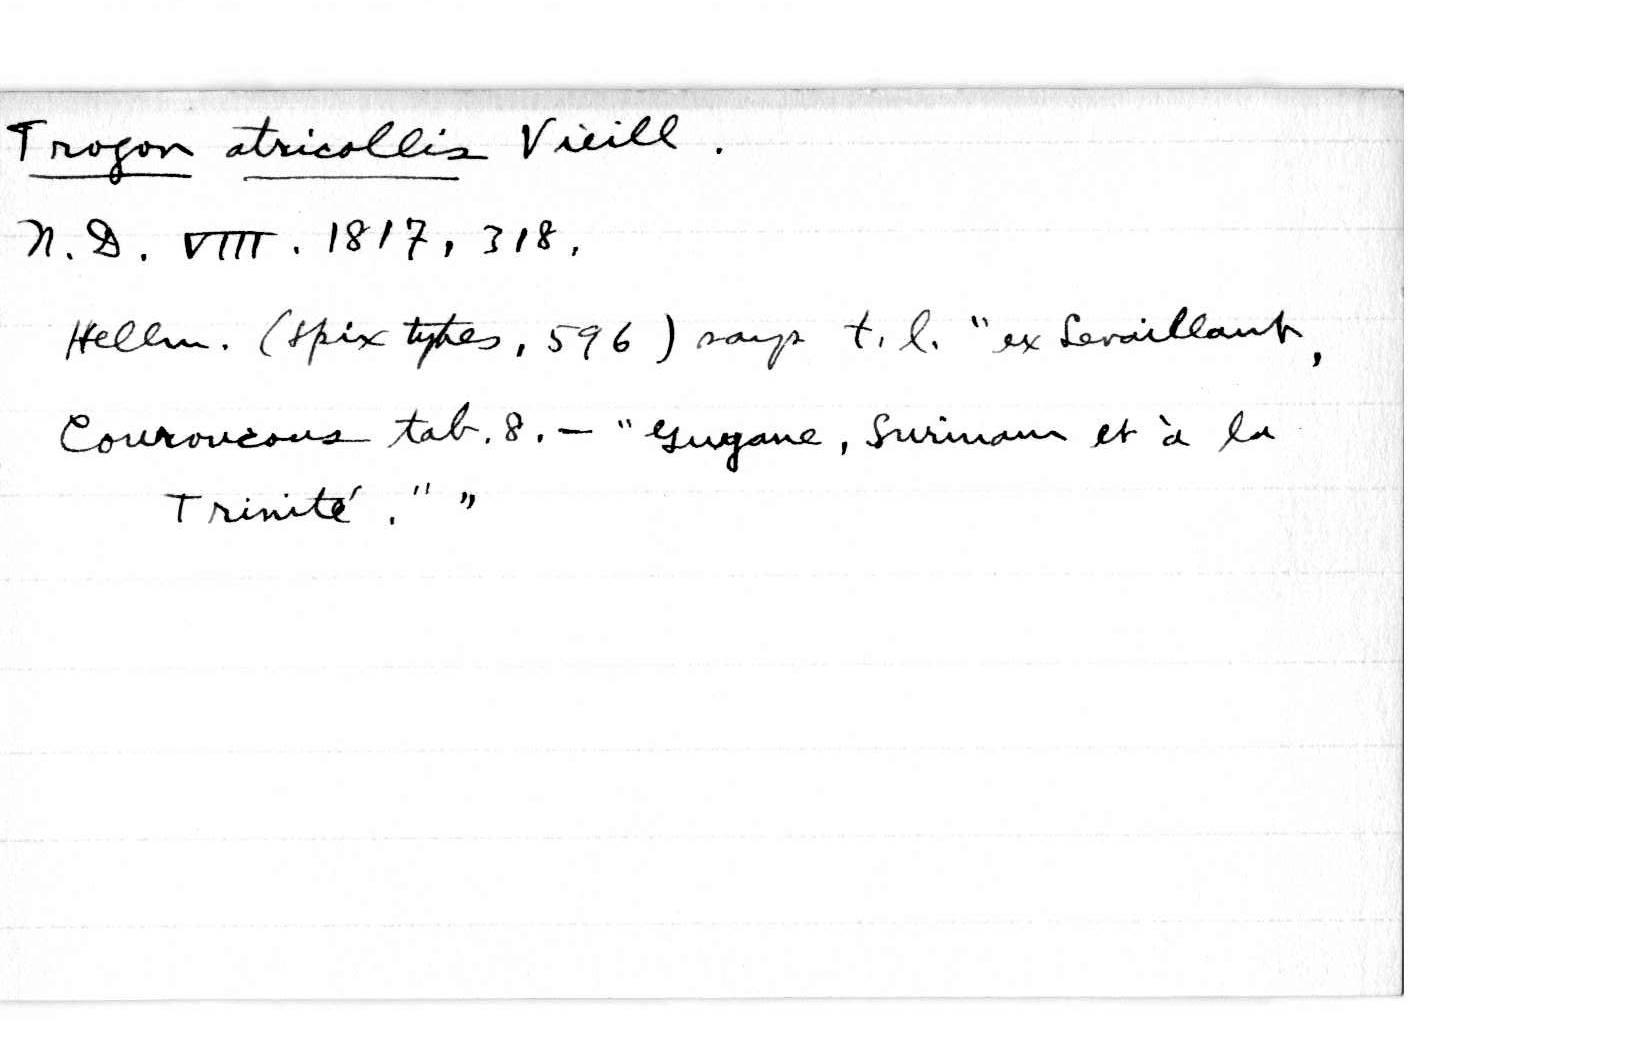 Trogon atricollis Vieill.
N. D. VIII. 1817, 318.
Hellm. (Spix types, 596) says t. l. "ex Levaillant,
Couroucous tab. 8. — "Guyane, Surinam et à la
Trinité." "